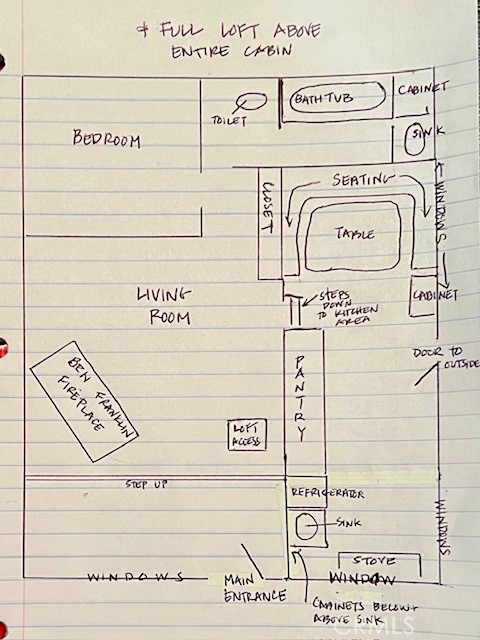 & FULL LOFT ABOVE
ENTIRE CABIN
BEDROOM
TOILET
BATHTUB
CABINET
SINK
CLOSET
SEATING
TABLE
WINDOWS
CABINET
LIVING
ROOM
STEPS
DOWN
TO KITCHEN
AREA
DOOR TO
OUTSIDE
BEN FRANKLIN
FIREPLACE
PANTRY
LOFT
ACCESS
STEP UP
REFRIGERATOR
SINK
WINDOWS
STOVE
WINDOWS
MAIN
ENTRANCE
WINDOW
CABINETS BELOW+
ABOVE SINK
CRMLS